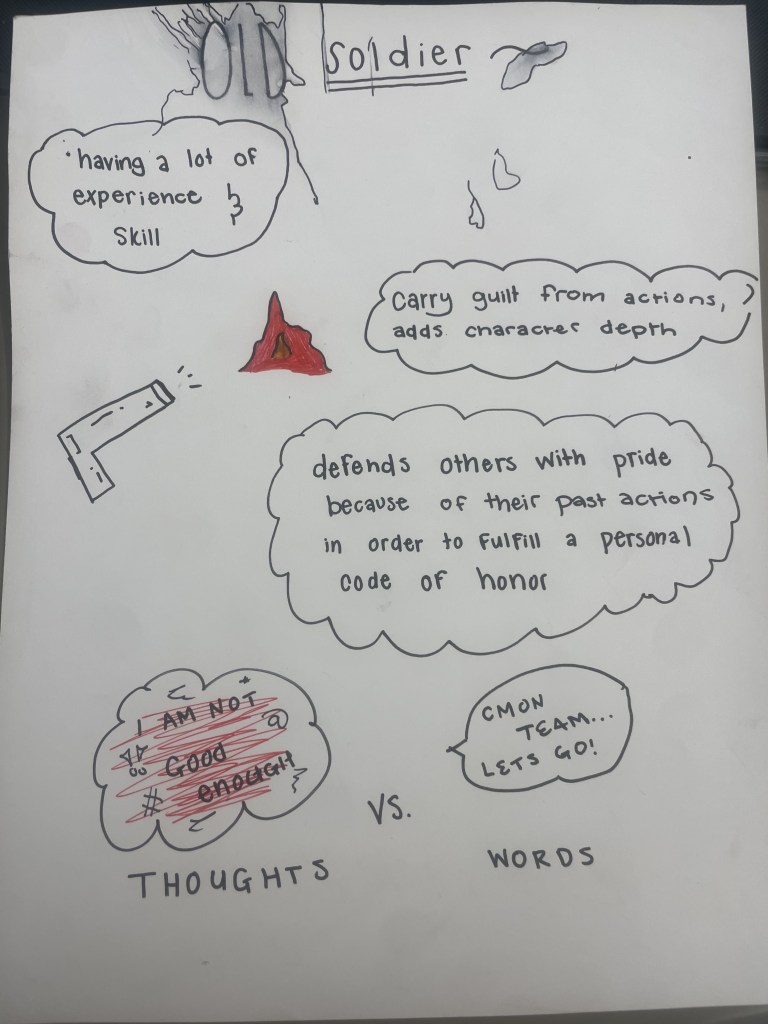 OLD soldier
• having a lot of
experience &
Skill
Carry guilt from actions,
adds character depth
defends others with pride
because of their past actions
in order to fulfill a personal
code of honor
I AM NOT
Good
enough
CMON
TEAM...
LETS GO!
VS.
THOUGHTS
WORDS